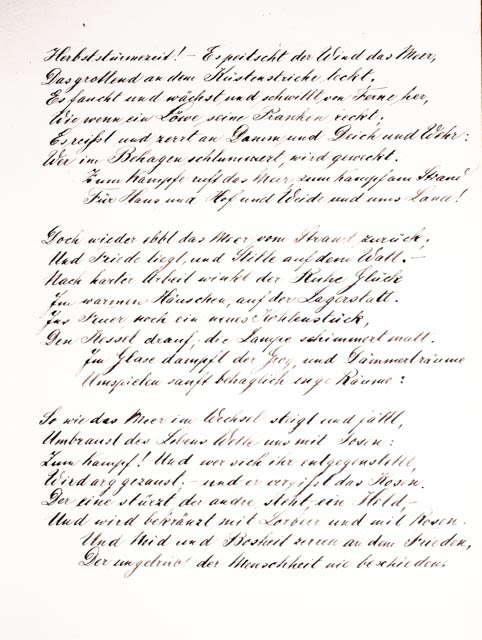 Herbststürmezeit! – Es peitscht der Wind das Meer,
Das grollend an dem Küstenstriche leckt,
Es faucht und wächst und schwillt von Ferne her,
Wie wenn ein Löwe seine Pranken reckt;
Es reißt und zerrt an Damm und Deich und Wehr:
Wer im Behagen schlummert, wird geweckt.
Zum Kampfe ruft das Meer, zum Kampf am Strand
Für Haus und Hof und Weide und ums Land!
Doch wieder ebbt das Meer vom Strand zurück,
Und Friede liegt, und Stille auf dem Watt. –
Nach harter Arbeit winkt der Ruhe Glück
Im warmen Häuschen, auf der Lagerstatt.
Ins Feuer noch ein neues Kohlenstück,
Den Kessel drauf, die Lampe schimmert matt.
Im Glase dampft der Grog, und Dämmerträume
Umspielen sanft behaglich enge Räume:
So wie das Meer im Wechsel steigt und fällt,
Umbraust des Lebens Welle uns mit Tosen:
Zum Kampf! Und wer sich ihr entgegenstellt,
Wird arg gezaust, – und er vergißt das Kosen.
Der eine stürzt, der andre steht, ein Held, –
Und wird bekränzt mit Lorbeer und mit Rosen.
Und Neid und Bosheit zerren an dem Frieden,
Der ungetrübt der Menschheit nie beschieden.